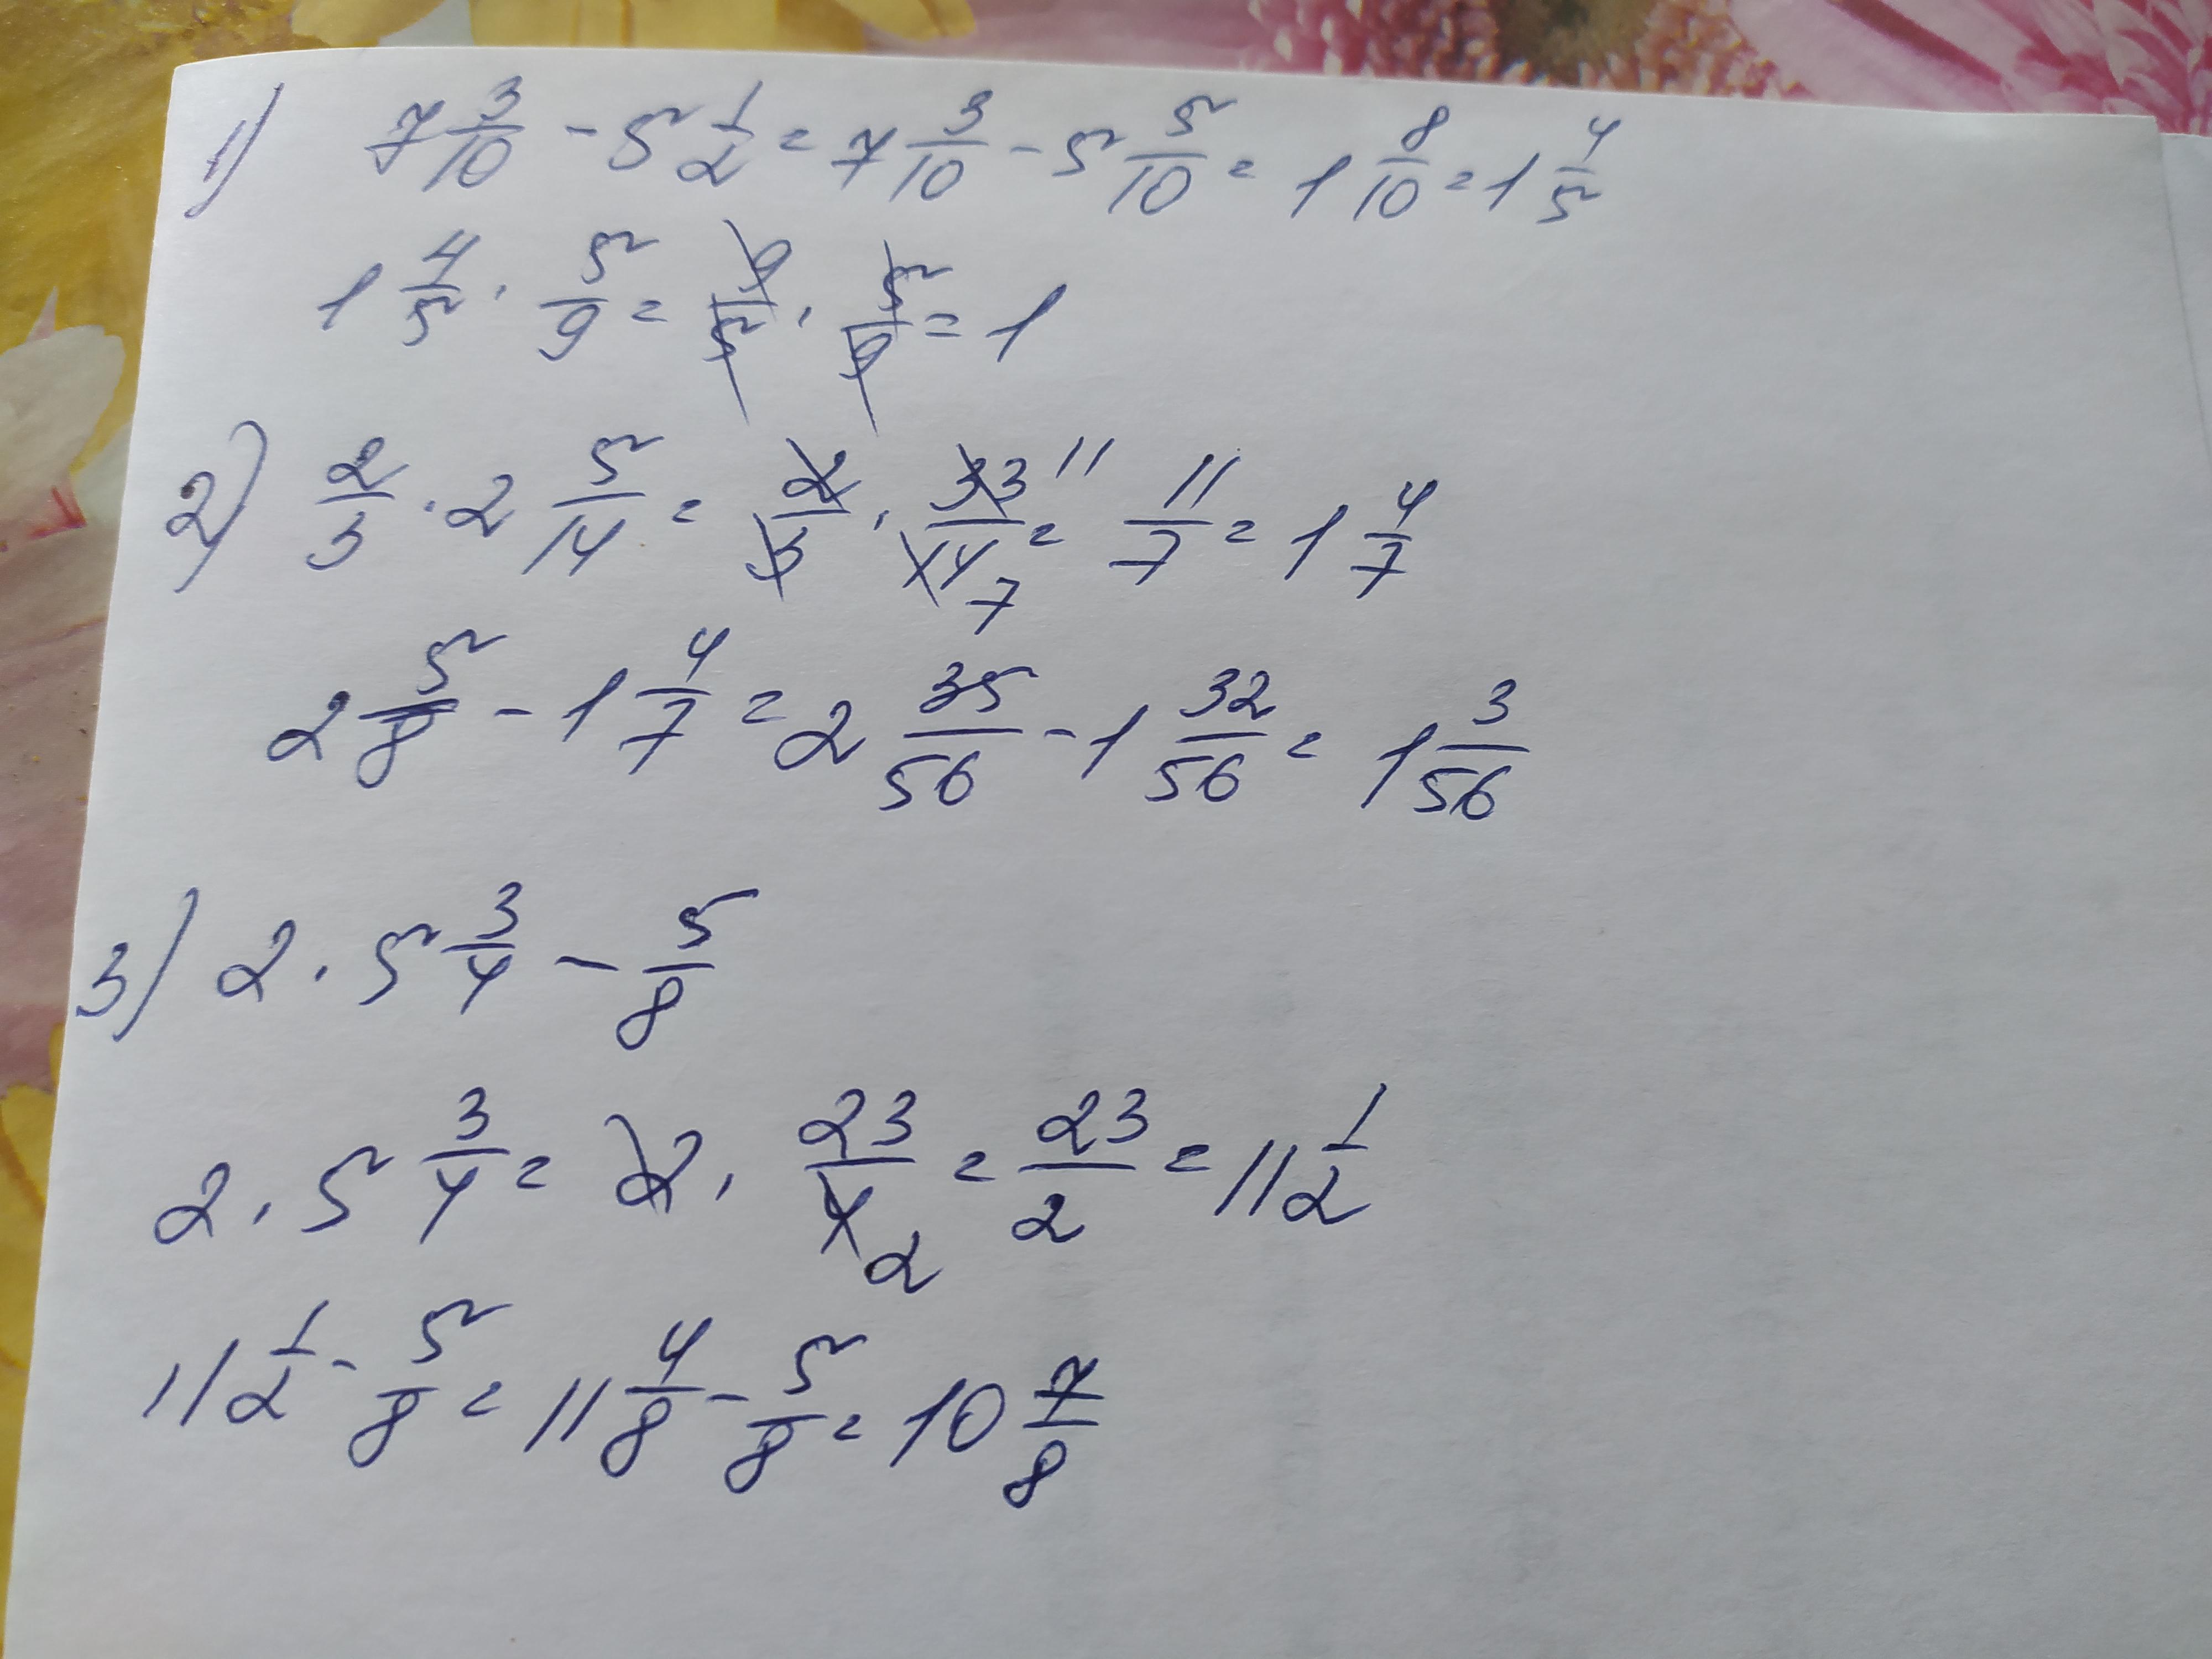 1) 7 3/10 - 5 1/2 = 7 3/10 - 5 5/10 = 1 8/10 = 1 4/5
1 4/5 · 5/9 = 9/5 · 5/9 = 1
2) 2/3 · 2 5/14 = 2/3 · 33/14 11 7 = 11/7 = 1 4/7
2 5/8 - 1 4/7 = 2 35/56 - 1 32/56 = 1 3/56
3) 2 · 5 3/4 - 5/8
2 · 5 3/4 = 2 · 23/4 2 = 23/2 = 11 1/2
11 1/2 - 5/8 = 11 4/8 - 5/8 = 10 7/8